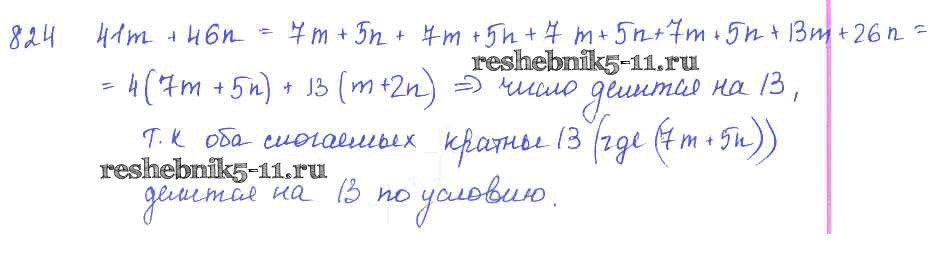 824 41m + 46n = 7m + 5n + 7m + 5n + 7m + 5n + 7m + 5n + 13m + 26n =
reshebnik5-11.ru
= 4(7m + 5n) + 13(m + 2n) ⇒ число делится на 13,
т.к оба слогаемых кратны 13 (где (7m + 5n))
reshebnik5-11.ru
делится на 13 по условию.